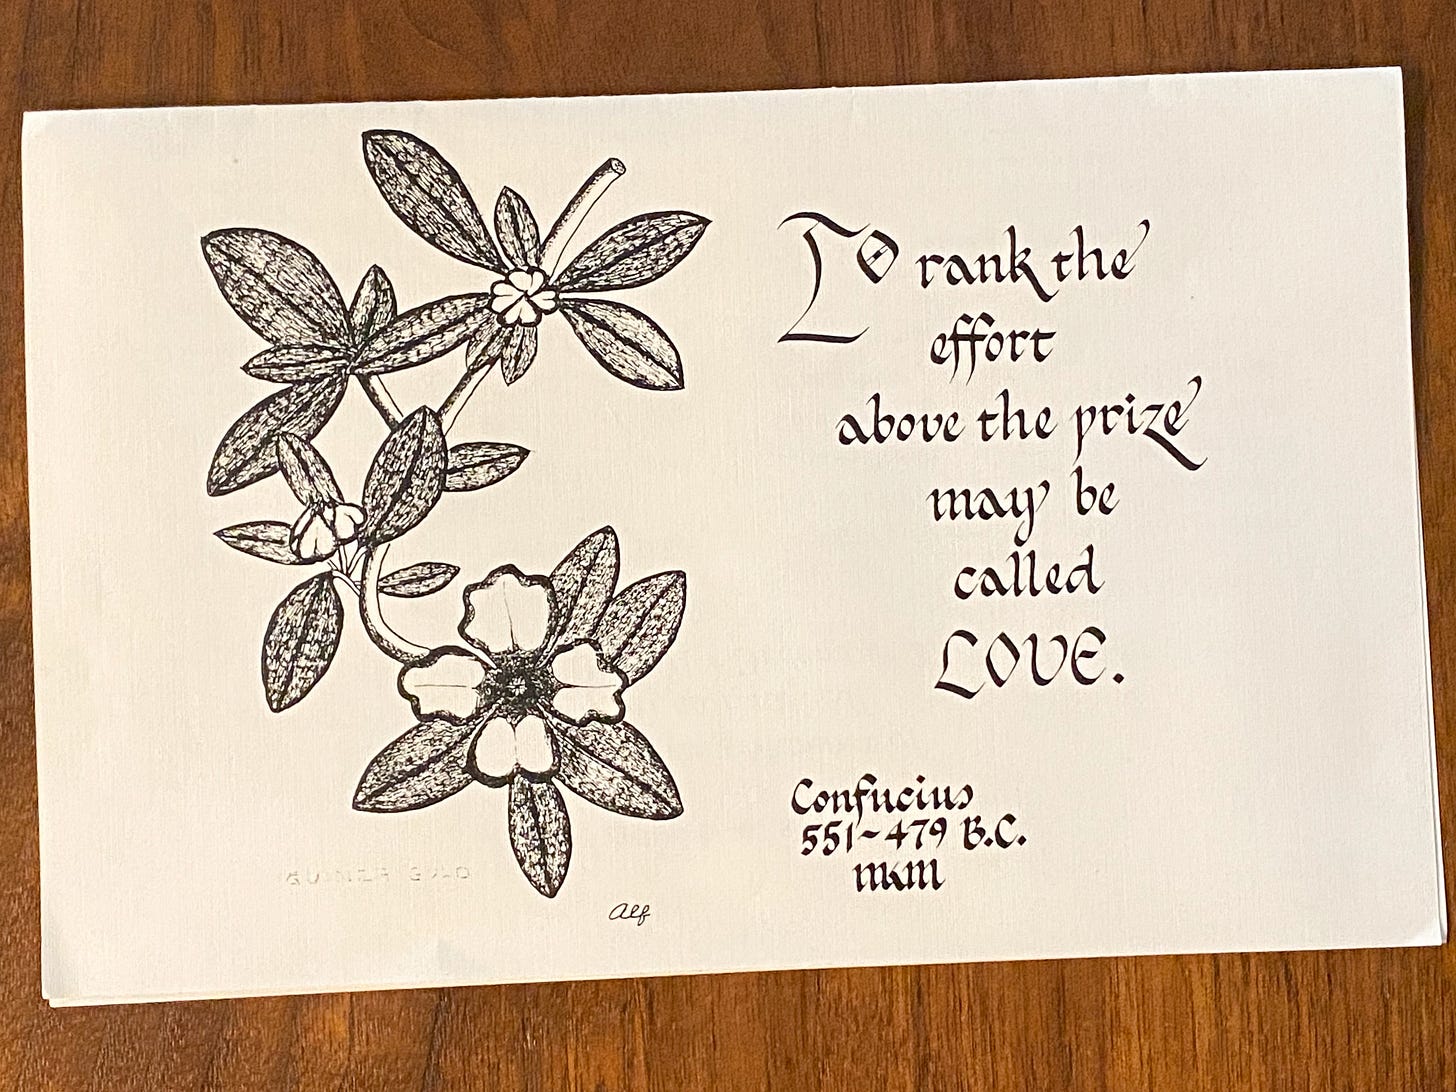 To rank the
effort
above the prize
may be
called
LOVE.
Confucius
551~479 B.C.
mkm
Alf